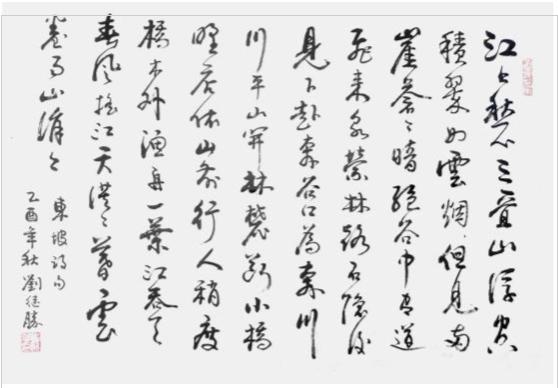 江上愁心三疊山浮空
積翠如雲烟但見兩
崖蒼々暗絕谷中有道
飛來泉縈林路石隱復
見下赴奔谷口為奔川
川平山開林麓斷小橋
野店依山前行人稍度
橋木外漁舟一葉江吞天
春風搖江天漠々暮雲
卷雨山娟々
東坡詩句
乙酉年秋劉勝